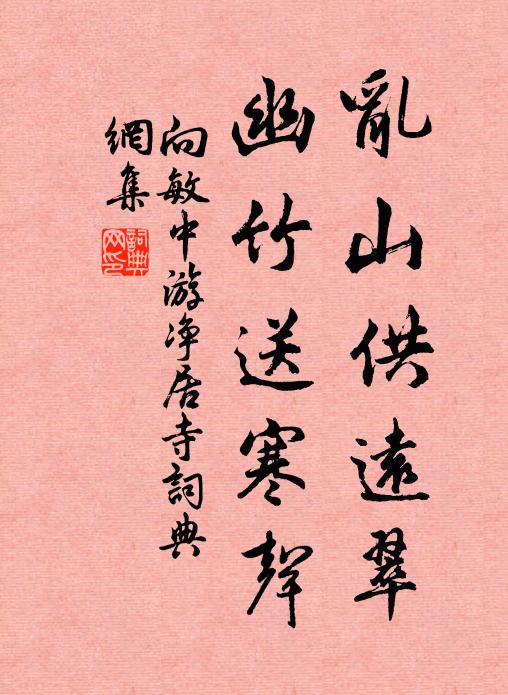 亂山供遠翠
幽竹送寒聲
向敏中游净居寺詞典
網集
詞典
网印